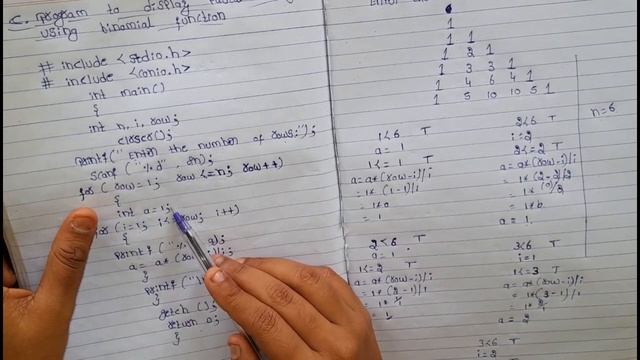 C. program to display
using binomial function
# include <stdio.h>
# include <conio.h>
int main()
{
int n, i, row;
clrscr();
printf(" Enter the number of rows:");
scanf ("%d", &n);
for ( row=1; row<=n; row++)
{
int a=1;
for (i=1; i<=row; i++)
{
printf ("%
a = a* (ro
}
printf("
}
getch ();
return 0;
}
1
1 1
1 2 1
1 3 3 1
1 4 6 4 1
1 5 10 10 5 1
n=6
1<6 T
a = 1
1<=1 T
a=a*(row-i)/i
=1*(1-1)/1
=1*0
=1
2<6 T
a=1
1<=2 T
a=a*(row-i)/i
=1*(2-1)/1
=1*1/1
=1
2<6 T
i=2
2<=2 T
a=a*(row-i)/i
=1*(0)/2
=1*0
a=1
3<6 T
i=1
1<=3 T
a=a*(row-i)/i
=1*(3-1)/1
=1*2/1
a=2
3<6 T
i=2